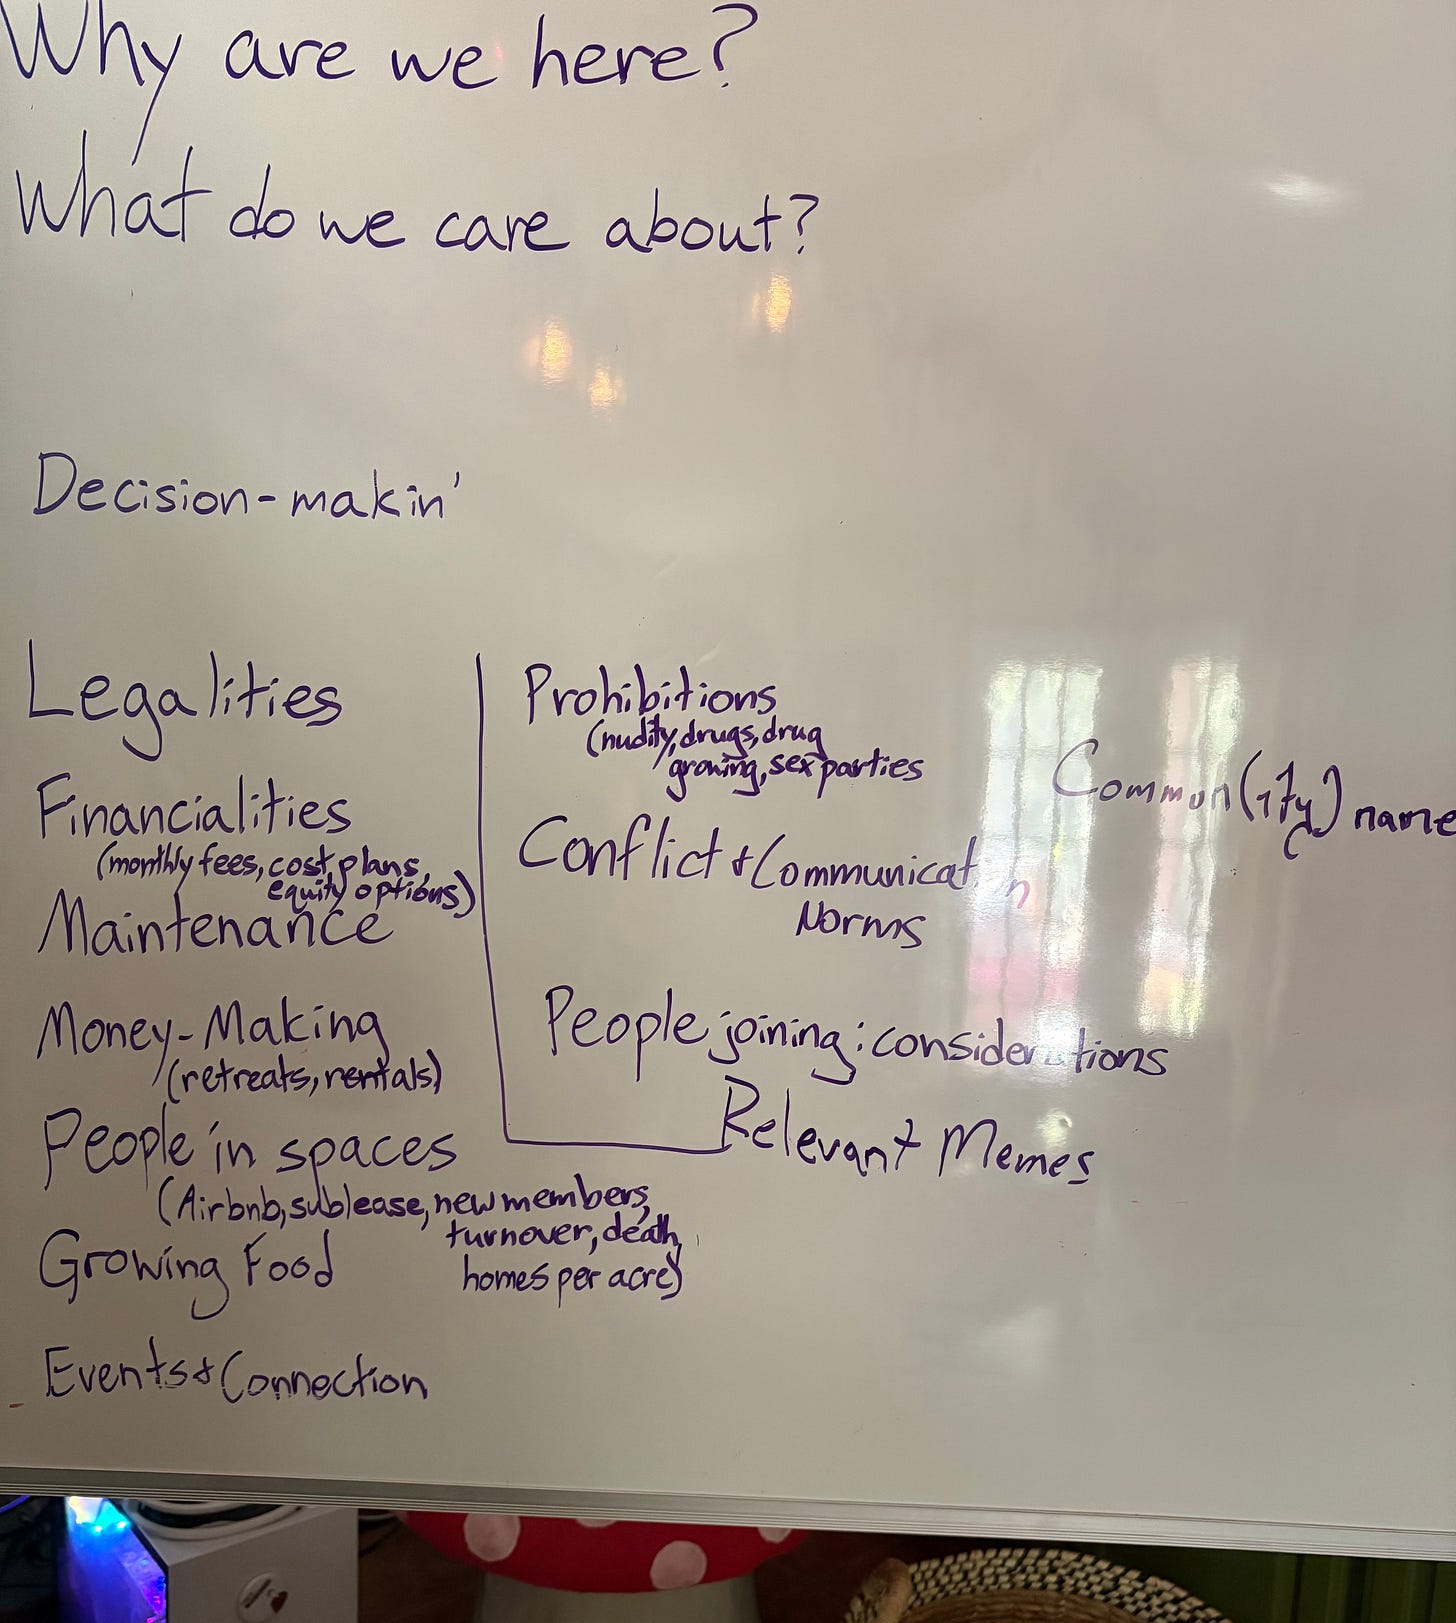 Why are we here?
What do we care about?
Decision-makin'
Legalities
Financialities
(monthly fees, cost plans,
equity options)
Maintenance
Money-Making
(retreats, rentals)
People in spaces
(Airbnb, sublease, new members,
turnover, death,
homes per acre)
Growing Food
Events & Connection
Prohibitions
(nudity, drugs, drug
growing, sex parties
Conflict & Communication
Norms
People joining: considerations
Relevant Memes
Commun(ity) name